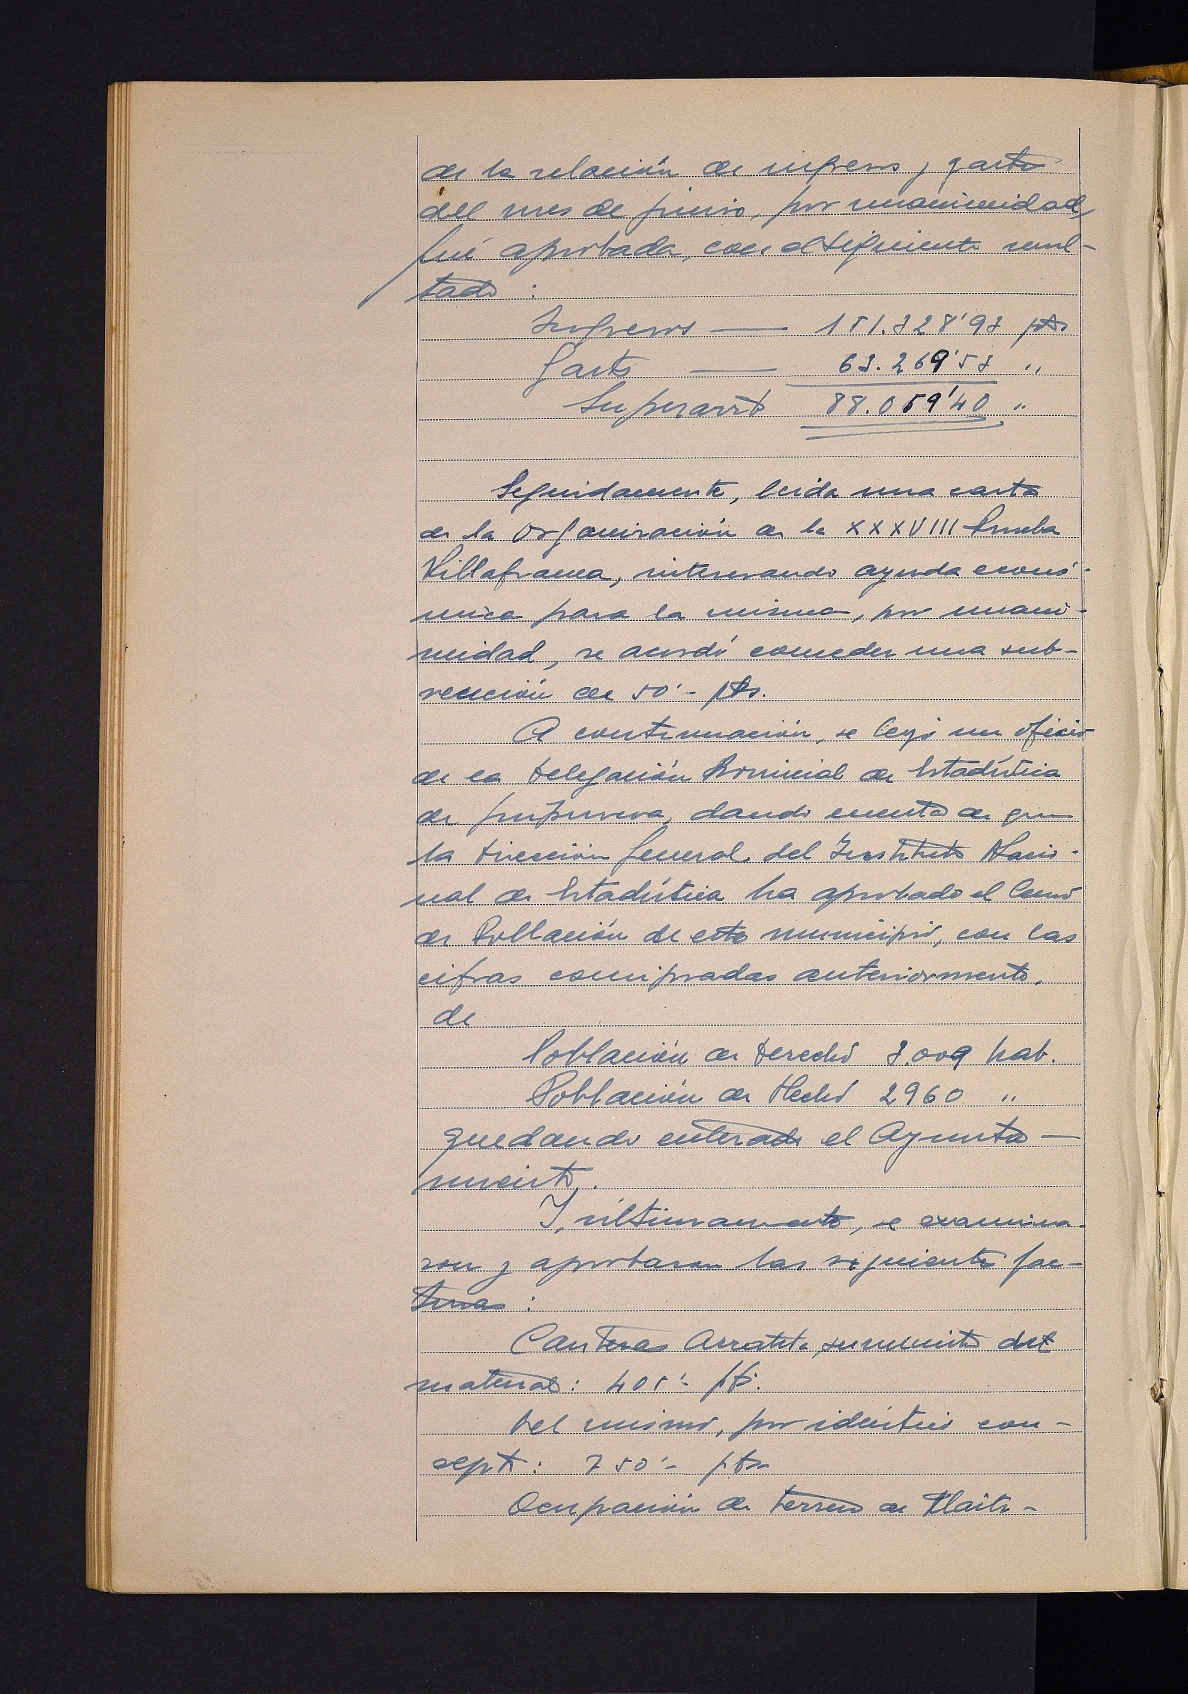 de la relación de ingresos y gastos
del mes de junio, por unanimidad,
fué aprobada, con el siguiente resul-
tado:
Ingresos — 151.328'93 pts
Gastos — 63.269'53 "
Superavit 88.059'40 "
Seguidamente, leida una carta
de la Organización de la XXXVIII Prueba
Villafranca, interesando ayuda econó-
mica para la misma, por unani-
midad, se acordó conceder una sub-
vención de 50'- pts.
A continuación, se leyó un oficio
de la Delegación Provincial de Estadística
de Guipuzcoa, dando cuenta de que
la Dirección General del Instituto Nacio-
nal de Estadística ha aprobado el Censo
de Población de este municipio, con las
cifras comipradas anteriormente,
de
Población de Derecho 3.009 hab.
Población de Hecho 2960 "
quedando enterado el Ayunta-
miento.
Y, últimamente, se examina-
ron y aprobaron las siguientes fac-
turas:
Canteras Arrateta, suministro del
material: 405'- pts.
Del mismo, por idéntico con-
cepto: 750'- pts
Ocupación de terreno de Maite-